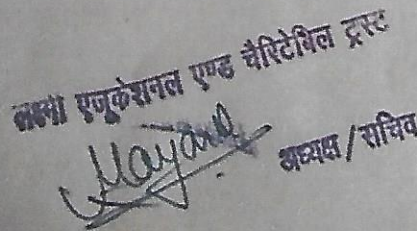 लक्ष्मी एजूकेशनल एण्ड चैरिटेबिल ट्रस्ट
अध्यक्ष/सचिव